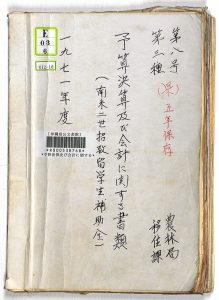 第八号
第三種
五年保存
予算決算及び会計に関する書類
(南米二世招致留学生補助金)
一九七一年度
農林局
移住課
E
03
6